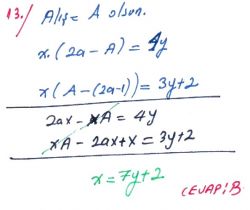 13./ Alış = A olsun.
x.(2a-A) = 4y
x(A-(2a-1)) = 3y+2
2ax - xA = 4y
xA - 2ax + x = 3y+2
x = 7y+2
CEVAP: B